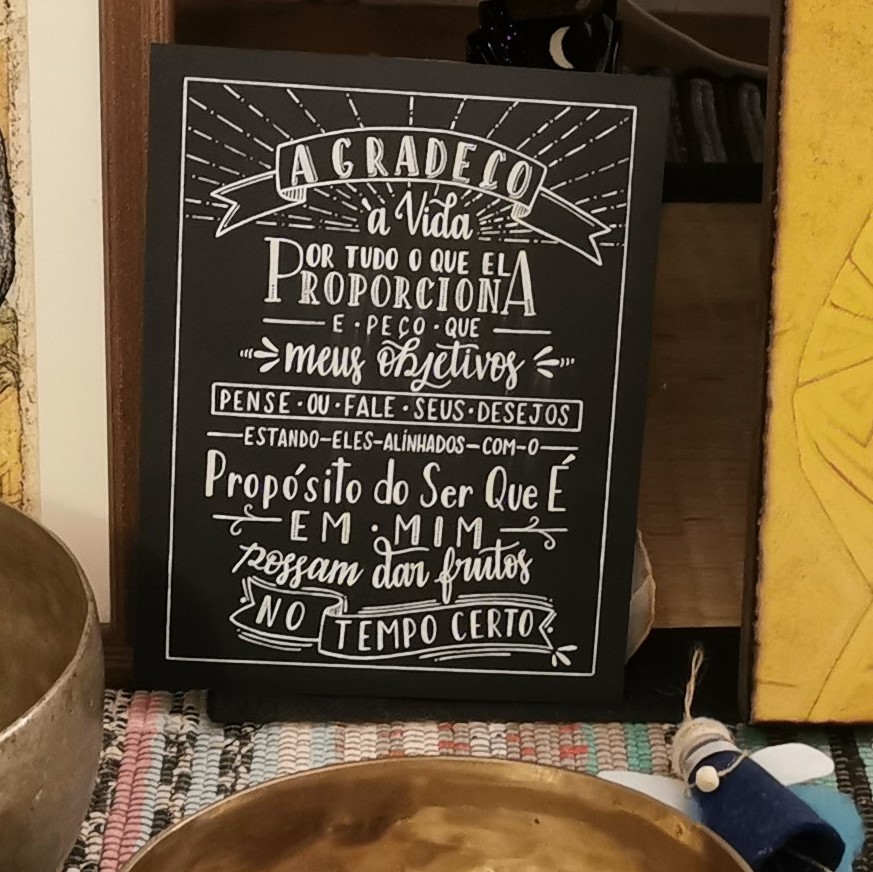 AGRADEÇO
à Vida
POR TUDO O QUE ELA
PROPORCIONA
E · PEÇO · QUE
meus objetivos
PENSE · OU · FALE · SEUS · DESEJOS
ESTANDO-ELES-ALINHADOS-COM-O
Propósito do Ser Que É
EM · MIM
possam dar frutos
NO
TEMPO CERTO